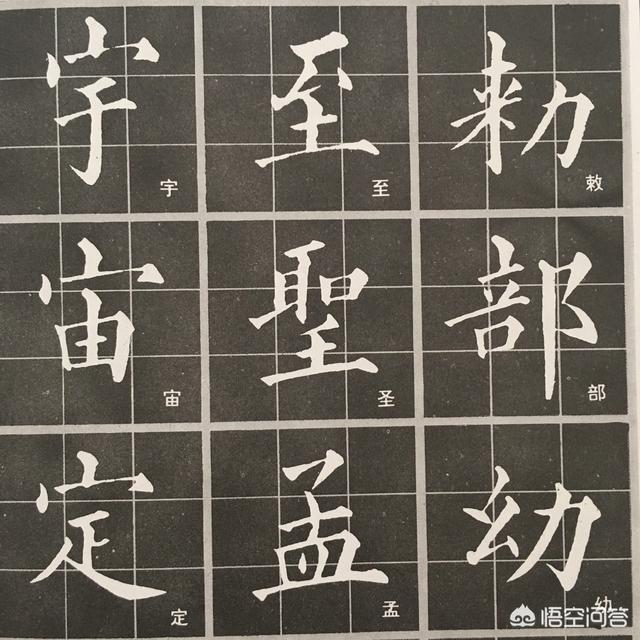 宇 至 勑
宇 至 敕
宙 聖 部
宙 圣 部
定 孟 幼
定 孟 幼
悟空问答